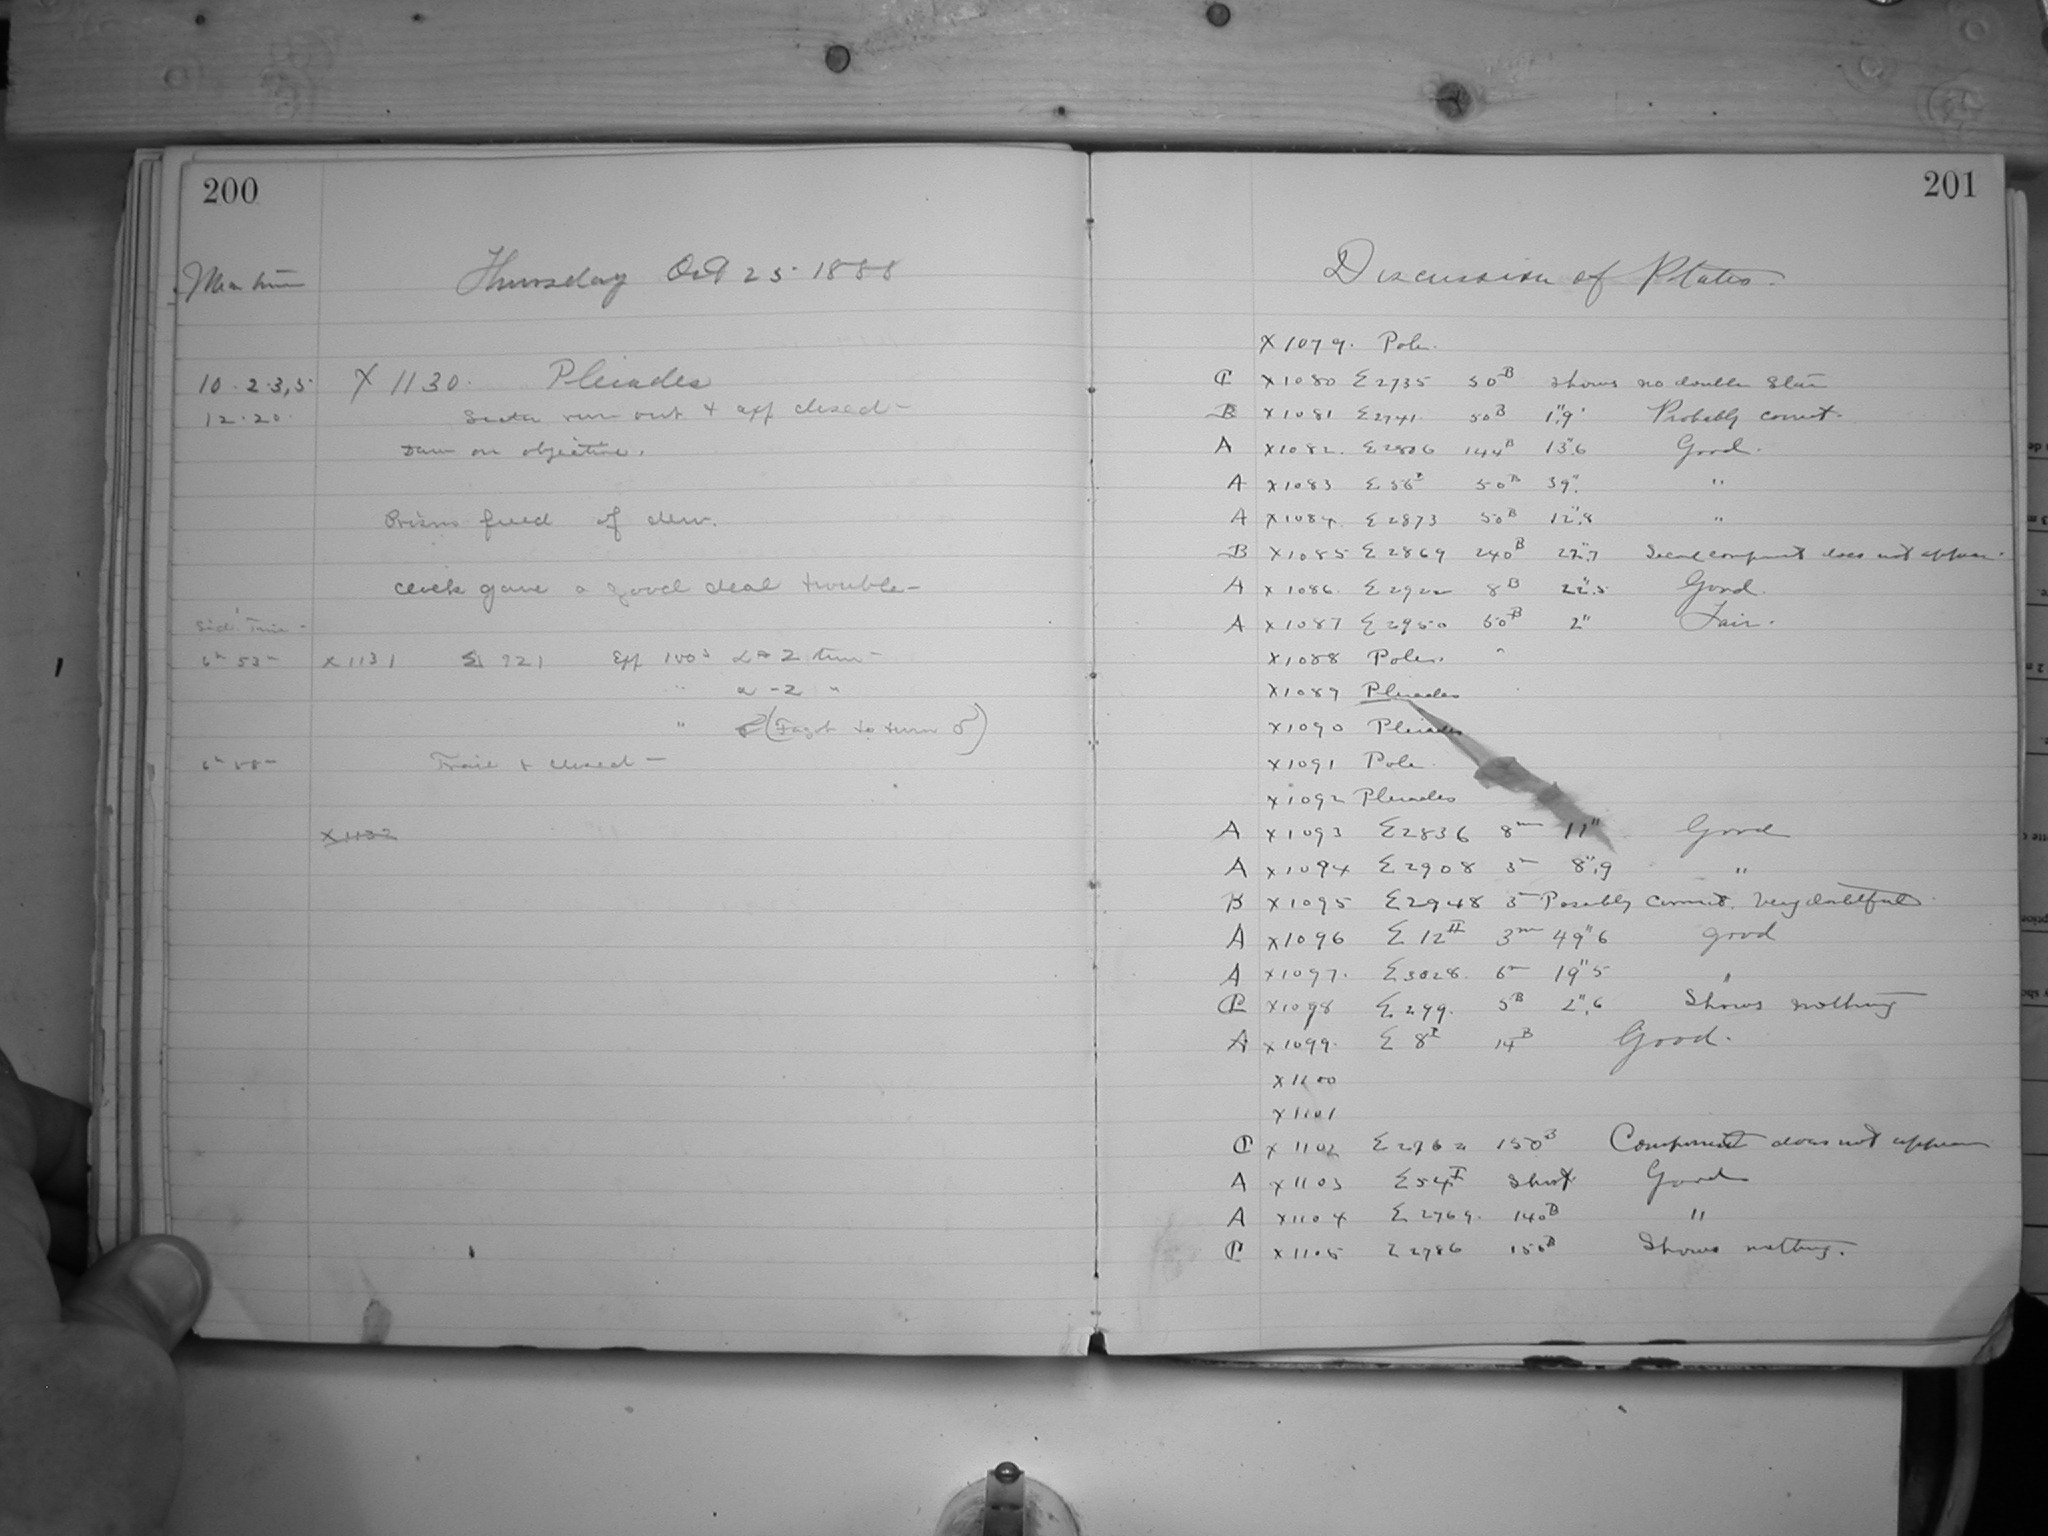 200
Thursday Oct 25 1888
10 . 2 . 3,5 X 1130. Pleiades
12 . 20 run out + closed -
on objective.
Prism freed of dew.
clock gave a good deal trouble -
Sid. Time -
6h 53m X 1131 Σ 921 Exp 100s
" -2 "
" (Forgot to turn δ)
Trail + closed -
X 1132
201
Discussion of Plates.
X 1079. Pole.
C X 1080 Σ 2735 50B shows no double star
B X 1081 Σ 2741. 50B 1",9 Probably correct.
A X 1082. Σ 2806 144B 13",6 Good.
A X 1083 Σ 56I 50B 39". "
A X 1084. Σ 2873 50B 12",8 "
B X 1085 Σ 2869 240B 22",7 Second component does not appear.
A X 1086. Σ 2922 8B 22",5 Good.
A X 1087 Σ 2950 50B 2" Fair.
X 1088 Pole.
X 1089 Pleiades
X 1090 Pleiades
X 1091 Pole.
X 1092 Pleiades
A X 1093 Σ 2836 8m 11" Good
A X 1094 Σ 2908 3m 8",9 "
B X 1095 Σ 2948 3m Possibly correct. Very doubtful.
A X 1096 Σ 12II 3m 49"6 good
A X 1097. Σ 3028. 6m 19"5 "
C X 1098 Σ 299. 5B 2",6 Shows nothing
A X 1099. Σ 8I 14B Good.
X 1100
X 1101
C X 1102 Σ 2762 150B Component does not appear
A X 1103 Σ 54I Short Good
A X 1104 Σ 2769. 140B "
C X 1105 Σ 2786 150B Shows nothing.